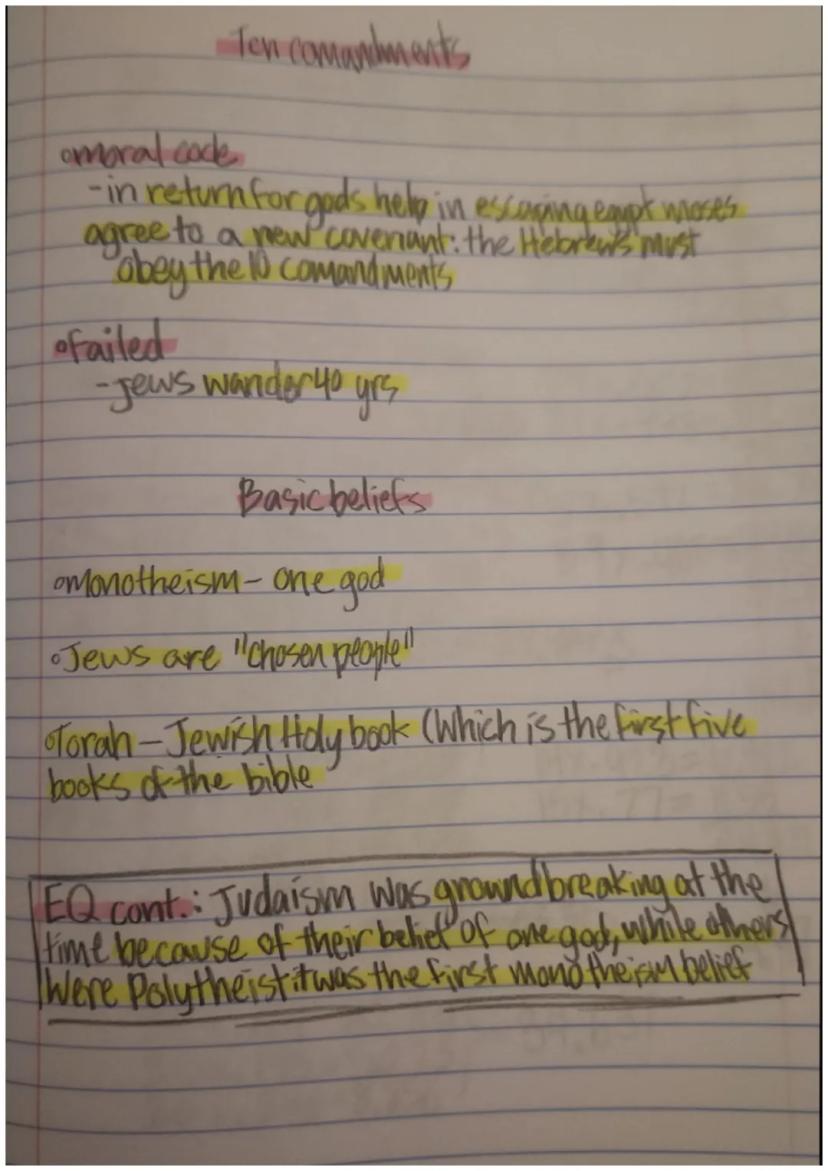 Ten comandments
◦moral code
-in return for gods help in escaping egypt moses
agree to a new covenant: the Hebrews must
obey the 10 comandments
◦Failed
-Jews wander 40 yrs
Basic beliefs
◦Monotheism - one god
◦Jews are "chosen people"
◦Torah - Jewish Holy book (Which is the first five
books of the bible
EQ cont.: Judaism was groundbreaking at the
time because of their belief of one god, while others
were Polytheist it was the first monotheism belief